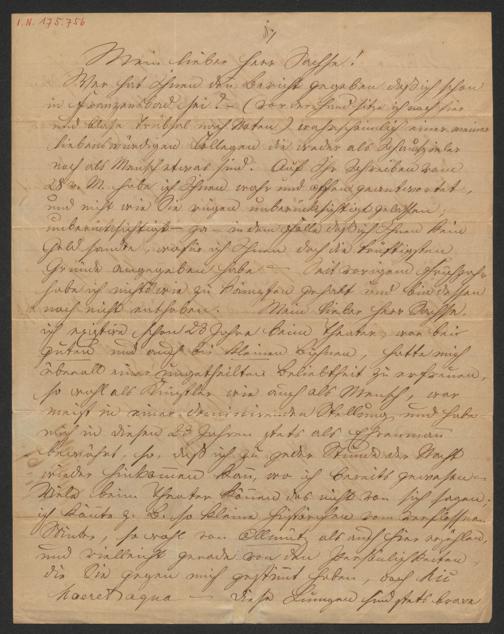 I.N. 175.756
Mein lieber Herr Sachse!
Wer hat Ihnen den Bericht gegeben daß ich schon
in Franzensbad sei? – (Vor der Hand sitze ich noch hier
und blase Trübsal nach Noten) wahrscheinlich einer meiner
liebenswürdigen Collegen die weder als Schauspieler
noch als Mensch etwas sind. Auf Ihr Schreiben vom
28 v. M. habe ich Ihnen wahr und offen geantwortet,
und nicht wie Sie sagen unberücksichtigt gelassen,
unberücksichtigt – ja – in dem Falle daß ich Ihnen kein
Geld sandte, wofür ich Ihnen doch die triftigsten
Gründe angegeben habe – Seit vorigem Frühjahr
habe ich nichts wie zu kämpfen gehabt und bin dessen
noch nicht enthoben. Mein lieber Herr Sachse
ich existire schon 23 Jahre beim Theater, war bei
guten und auch bei kleinen Bühnen, hatte mich
überall einer ungetheilten Beliebtheit zu erfreuen,
so wohl als Künstler wie auch als Mensch, war
meist in einer dominirenden Stellung, und habe
mich in diesen 23 Jahren stets als Ehrenmann
bewährt, so, daß ich zu jeder Stunde der Nacht
wieder hinkommen kann, wo ich bereits gewesen –
Viele beim Theater können das nicht von sich sagen,
ich könnte z. B. so kleine Histörchen vom verflossenen
Winter, so wohl von Ollmütz als auch hier erzählen,
und vielleicht gerade von den Persönlichkeiten,
die Sie gegen mich gestimt haben, doch hic
haeret aqua – diese Jungen sind stets brave